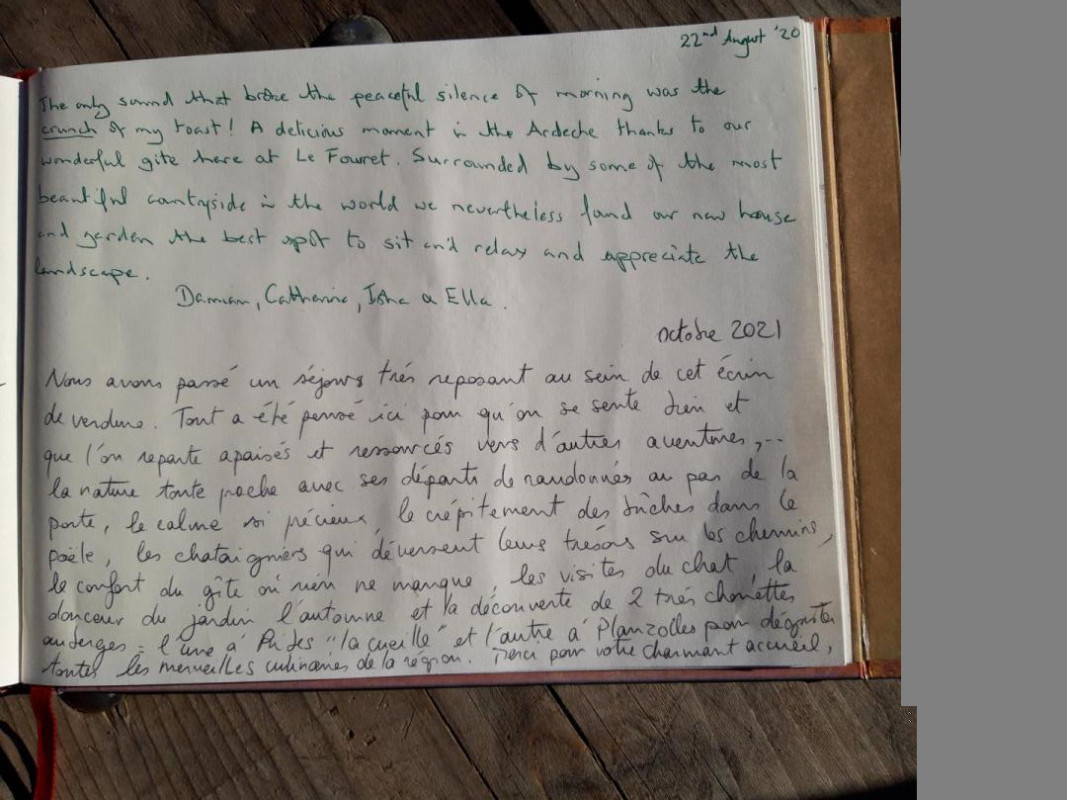 22nd August '20
The only sound that broke the peaceful silence of morning was the
crunch of my toast! A delicious moment in the Ardeche thanks to our
wonderful gite here at Le Fouret. Surrounded by some of the most
beautiful countryside in the world we nevertheless found our new house
and garden the best spot to sit and relax and appreciate the
landscape.
Damian, Catherine, & Ella.
octobre 2021
Nous avons passé un séjours très reposant au sein de cet écrin
de verdure. Tout a été pensé ici pour qu'on se sente bien et
que l'on reparte apaisés et ressourcés vers d'autres aventures,...
la nature toute proche avec ses départs de randonnés au pas de la
porte, le calme si précieux, le crépitement des bûches dans le
poële, les chataigniers qui déversent leurs trésors sur les chemins,
le confort du gîte où rien ne manque, les visites du chat, la
douceur du jardin l'automne et la découverte de 2 très chouettes
auberges : l'une à "la cueille" et l'autre à Planzolles pour déguster
toutes les merveilles culinaires de la région. Merci pour votre charmant accueil,